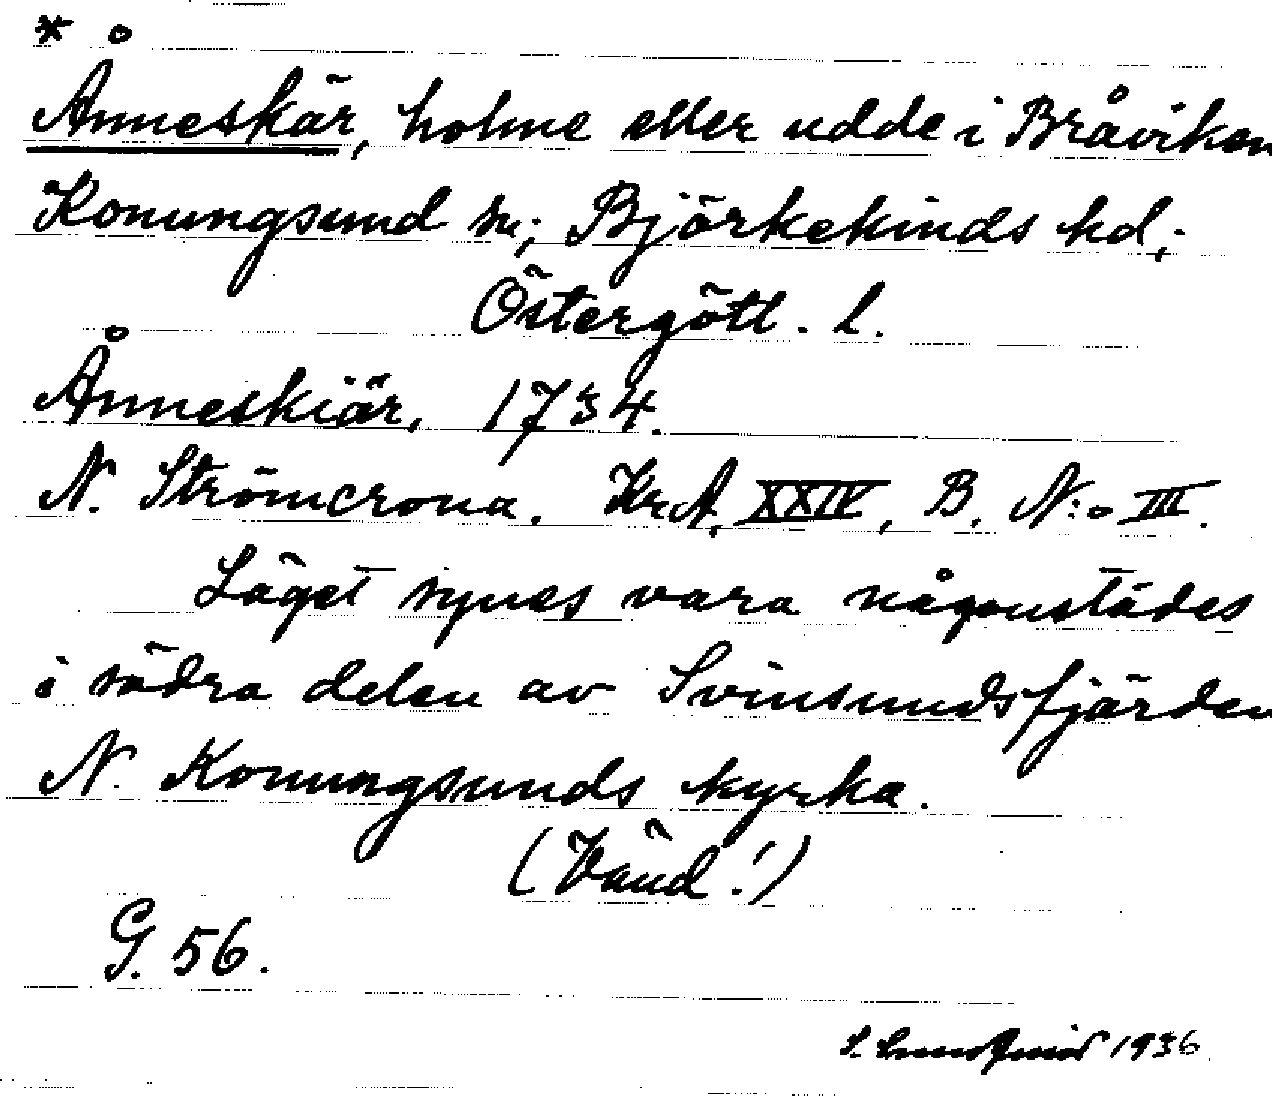 * Ånneskär, holme eller udde i Bråviken
Konungsund sn; Björkekinds hd,
Östergötl. l.
Ånneskiär, 1734.
N. Strömcrona. KrA, XXIV, B. N:o III.
Läget synes vara någonstädes
i södra delen av Svinsundsfjärden
N. Konungsunds kyrka.
(Vänd!)
G. 56.
1936